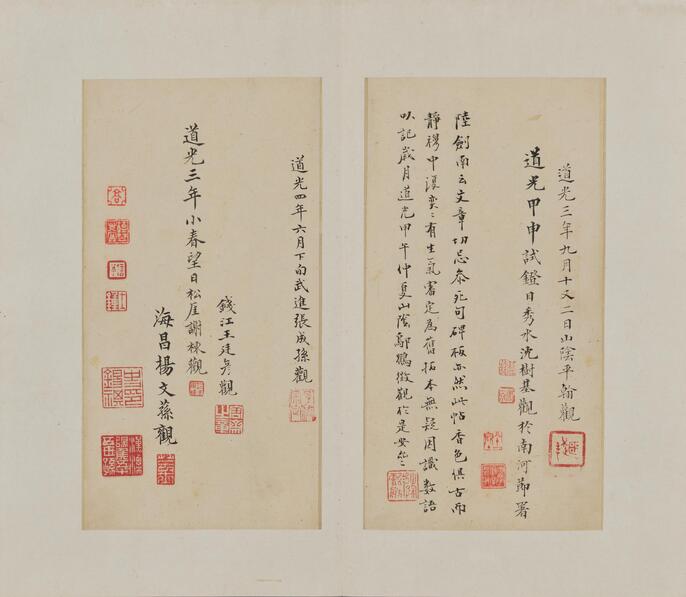 道光三年九月十又二日山陰平翰觀
道光甲申試鐙日秀水沈樹基觀於南河節署
陸劍南云文章切忌參死句碑板亦然此帖香色俱古而
靜穆中復奕奕有生氣審定為舊拓本無疑因識數語
以記歲月道光甲午仲夏山陰鄔鶴徵觀於是安
道光四年六月下旬武進張成孫觀
錢江王廷彥觀
道光三年小春望日松厓謝棟觀
海昌楊文蓀觀